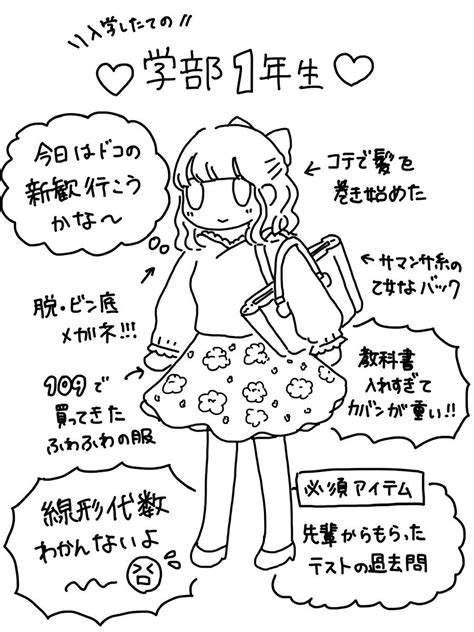 入学したての
♡学部1年生♡
今日はドコの
新歓行こう
かな〜
コテで髪を
巻き始めた
脱・ビン底
メガネ!!!
サマンサ系の
乙女なバック
109で
買ってきた
ふわふわの服
教科書
入れすぎて
カバンが重い!!
線形代数
わかんないよ
〜〜
必須アイテム
先輩からもらった
テストの過去問